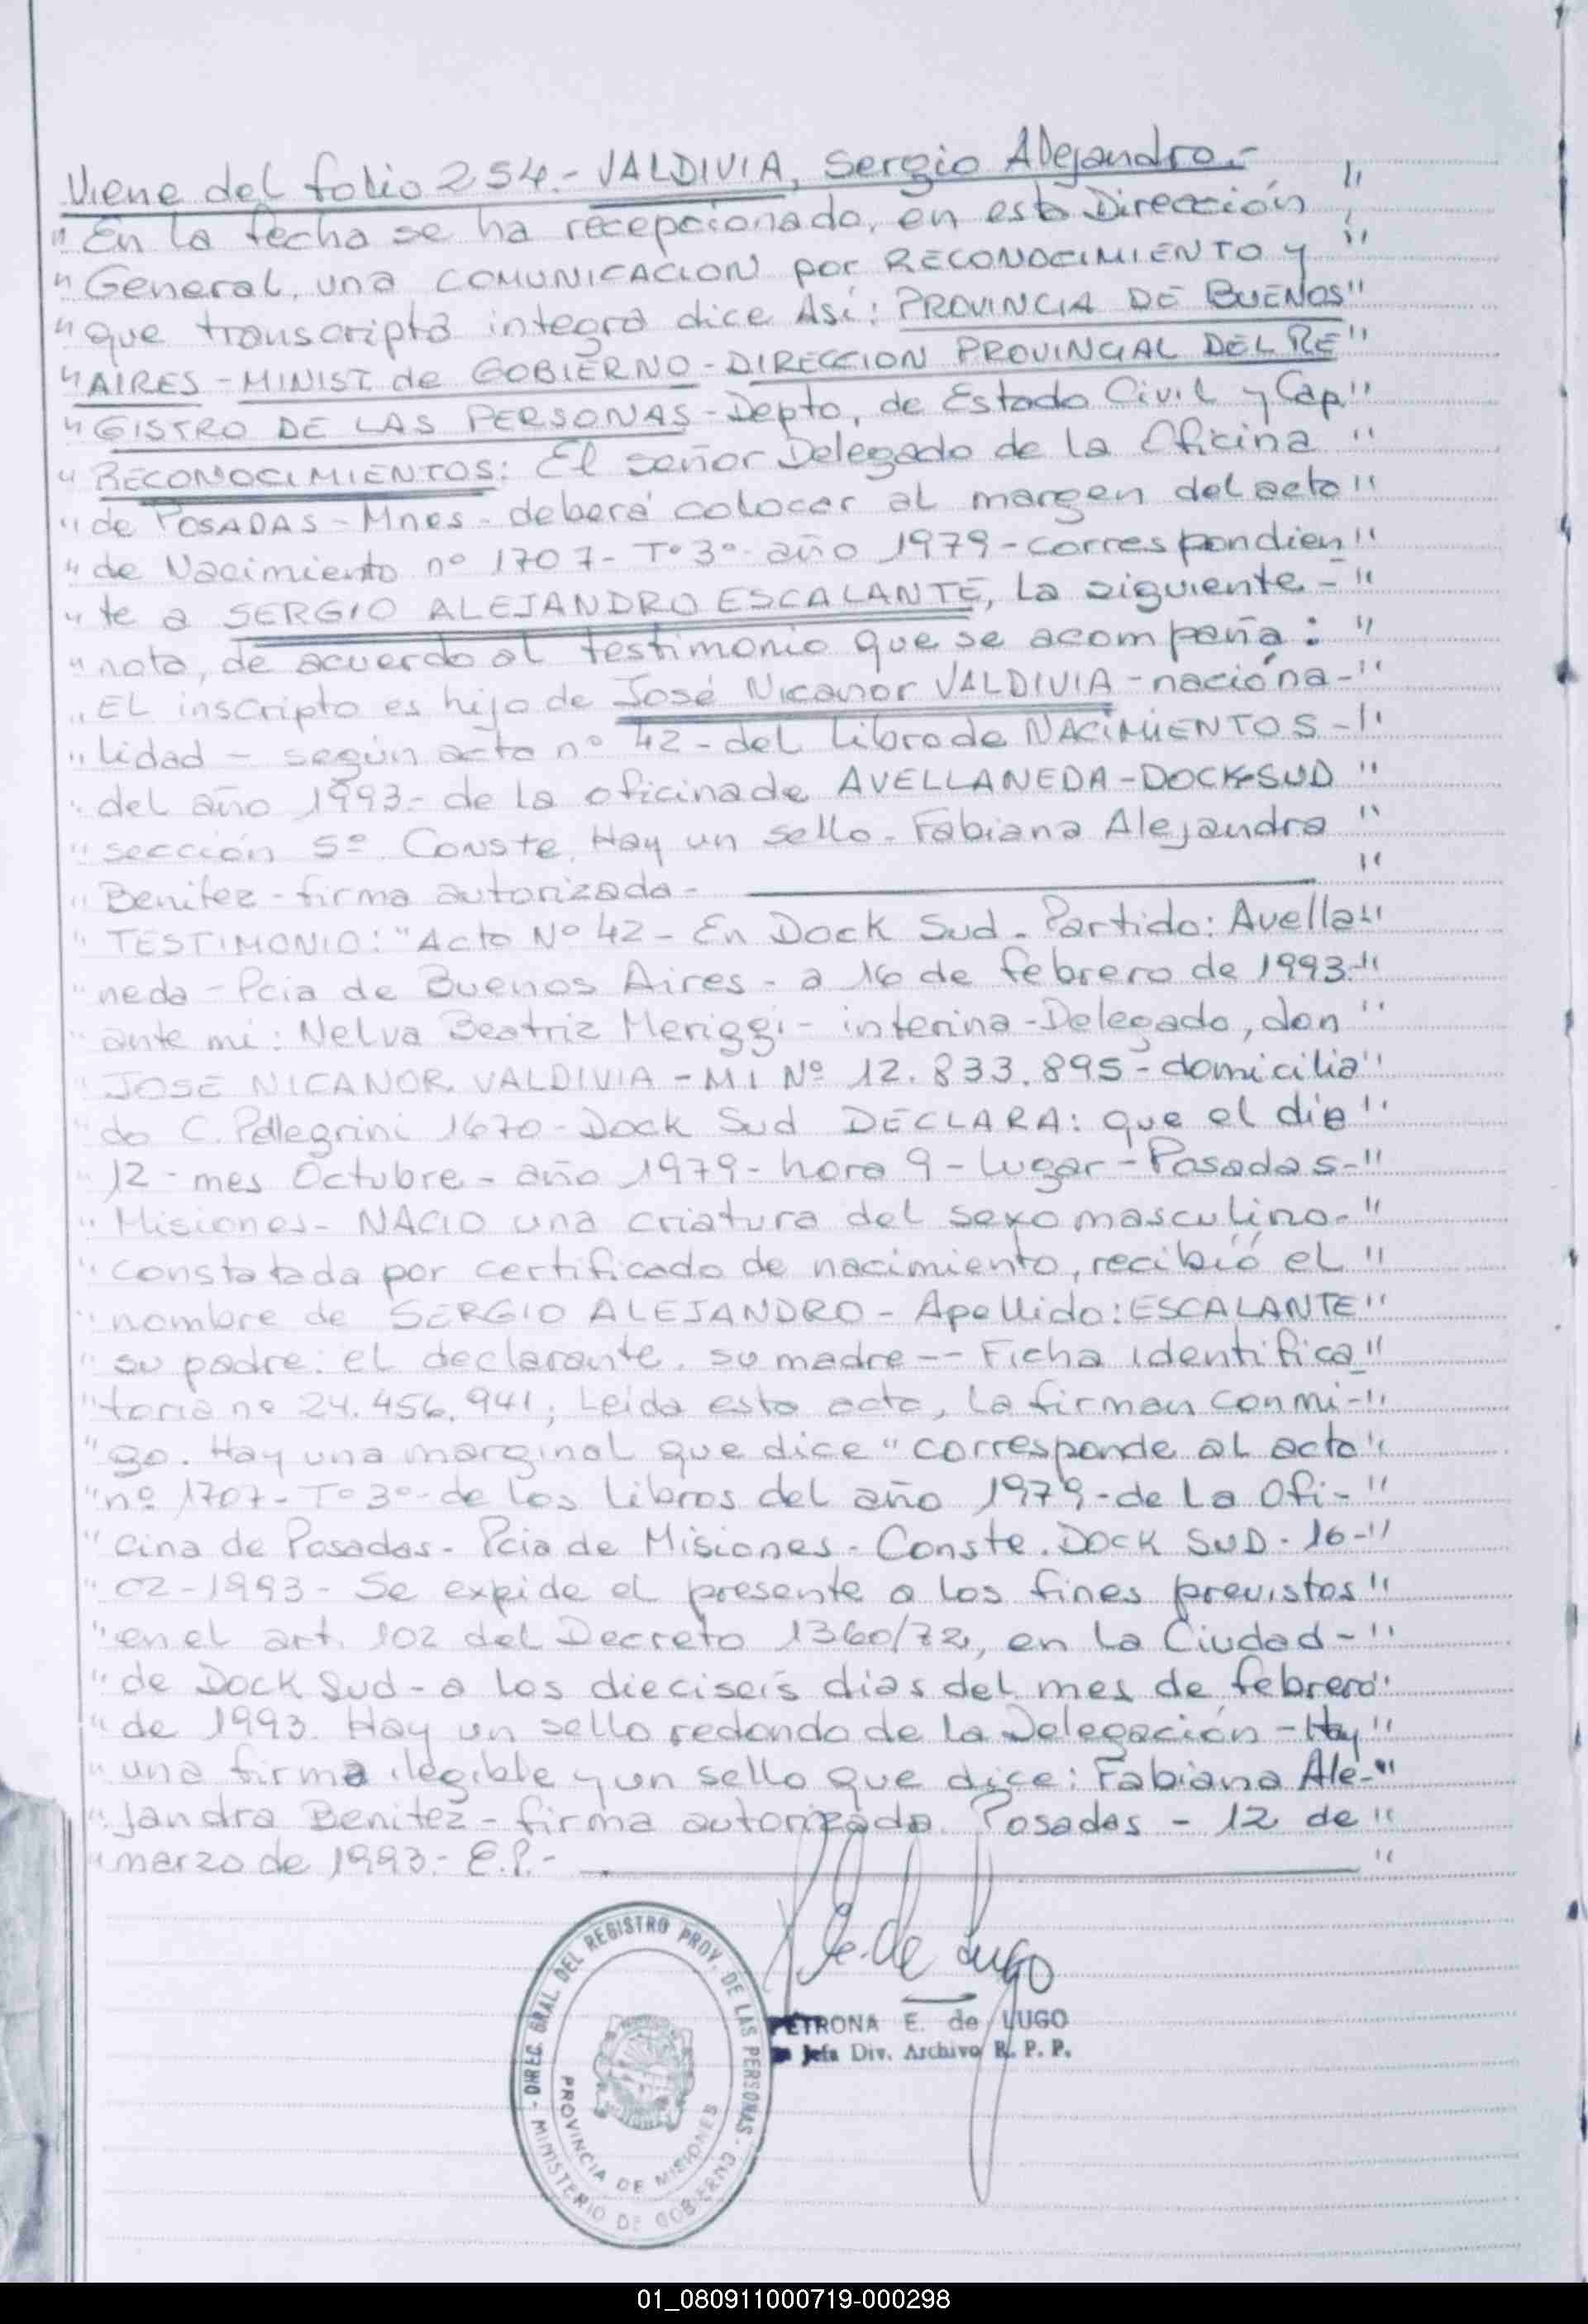 Viene del folio 254.- VALDIVIA, Sergio Alejandro.-
" En la fecha se ha recepcionado, en esta Dirección "
" General, una COMUNICACION por RECONOCIMIENTO y "
" que transcripta integra dice Así: PROVINCIA DE BUENOS "
" AIRES - MINIST de GOBIERNO - DIRECCION PROVINCIAL DEL RE "
" GISTRO DE LAS PERSONAS - Depto, de Estado Civil y Cap "
" RECONOCIMIENTOS: El señor Delegado de la Oficina "
" de POSADAS - Mnes - deberá colocar al margen del acta "
" de Nacimiento nº 1707 - Tº 3º - año 1979 - correspondien "
" te a SERGIO ALEJANDRO ESCALANTE, la siguiente - "
" nota, de acuerdo al testimonio que se acompaña: "
" EL inscripto es hijo de José Nicanor VALDIVIA - naciona- "
" lidad - según acta nº 42 - del Libro de NACIMIENTOS - "
" del año 1993.- de la oficina de AVELLANEDA - DOCK SUD "
" sección 5º Conste. Hay un sello - Fabiana Alejandra "
" Benitez - firma autorizada - "
" TESTIMONIO: "Acta Nº 42 - En Dock Sud - Partido: Avella- "
" neda - Pcia de Buenos Aires - a 16 de febrero de 1993.- "
" ante mi: Nelva Beatriz Meriggi - interina - Delegado, don "
" JOSE NICANOR VALDIVIA - M I Nº 12.833.895 - domicilia "
" do C. Pellegrini 1670 - Dock Sud DECLARA: que el dia "
" 12 - mes Octubre - año 1979 - hora 9 - Lugar - Posadas - "
" Misiones - NACIO una criatura del sexo masculino. "
" Constatada por certificado de nacimiento, recibió el "
" nombre de SERGIO ALEJANDRO - Apellido: ESCALANTE "
" su padre: el declarante. su madre -- Ficha identifica "
" toria nº 24.456.941; Leida esta acta, la firman conmi- "
" go. Hay una marginal que dice " corresponde al acta "
" nº 1707 - Tº 3º - de los Libros del año 1979 - de La Ofi- "
" cina de Posadas - Pcia de Misiones - Conste. DOCK SUD - 16 - "
" 02 - 1993 - Se expide el presente a los fines previstos "
" en el art. 102 del Decreto 1360/72, en la Ciudad - "
" de Dock Sud - a los dieciseis dias del mes de febrero "
" de 1993. Hay un sello redondo de la Delegación - Hay "
" una firma ilegible y un sello que dice: Fabiana Ale- "
" jandra Benitez - firma autorizada. Posadas - 12 de "
" marzo de 1993.- E.P.- "
E. de Lugo
PETRONA E. de LUGO
Jefa Div. Archivo R. P. P.
DIREC. GRAL. DEL REGISTRO PROV. DE LAS PERSONAS - MINISTERIO DE GOBIERNO -
PROVINCIA DE MISIONES
01_080911000719-000298